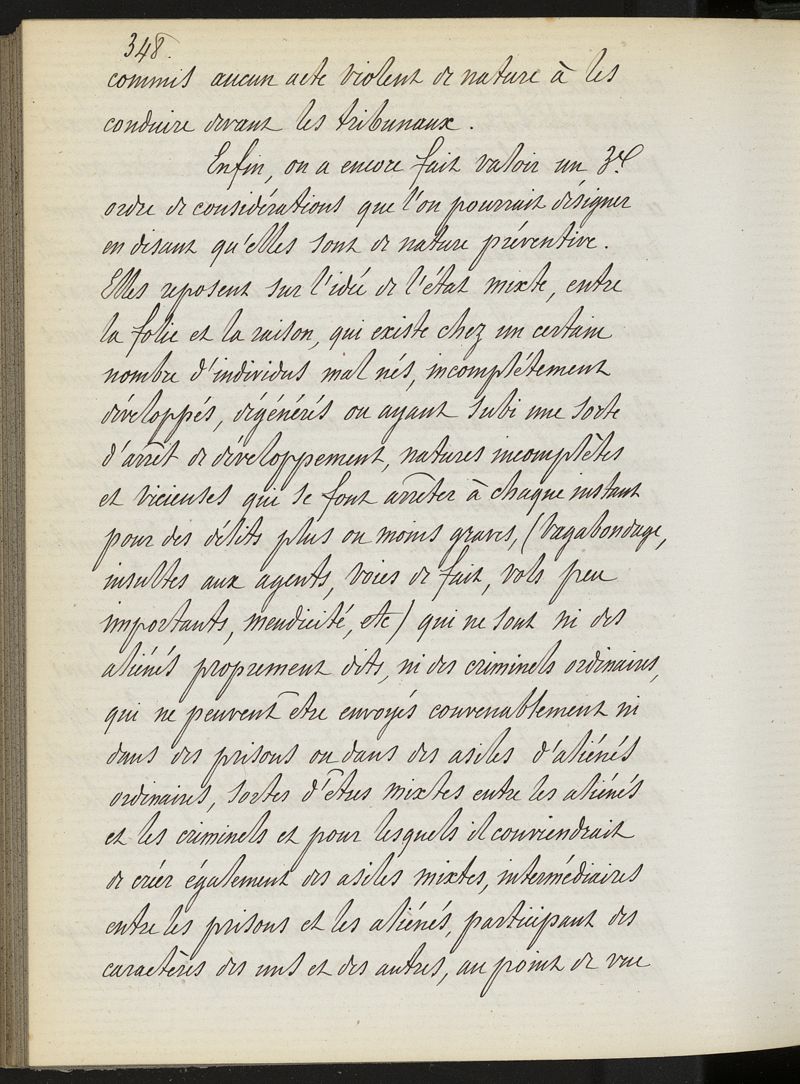 348.
commis aucun acte violent de nature à les
conduire devant les tribunaux.
Enfin, on a encore fait valoir un 3e.
ordre de considérations que l'on pourrait désigner
en disant qu'elles sont de nature préventive.
Elles reposent sur l'idée de l'état mixte, entre
la folie et la raison, qui existe chez un certain
nombre d'individus mal nés, incomplètement
développés, dégénérés ou ayant subi une sorte
d'arrêt de développement, natures incomplètes
et vicieuses qui se font arrêter à chaque instant
pour des délits plus ou moins graves, (Vagabondage,
insultes aux agents, voies de fait, vols peu
importants, mendicité, etc) qui ne sont ni des
aliénés proprement dits, ni des criminels ordinaires,
qui ne peuvent être envoyés convenablement ni
dans des prisons ou dans des asiles d'aliénés
ordinaires, sortes d'êtres mixtes entre les aliénés
et les criminels et pour lesquels il conviendrait
de créer également des asiles mixtes, intermédiaires
entre les prisons et les aliénés, participant des
caractères des uns et des autres, au point de vue